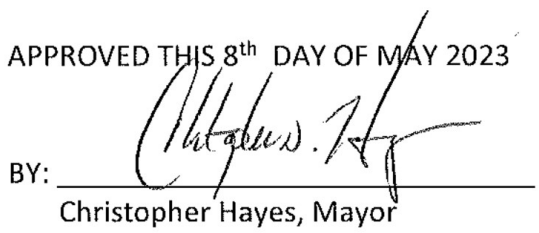 APPROVED THIS 8th DAY OF MAY 2023
BY:
Christopher Hayes, Mayor